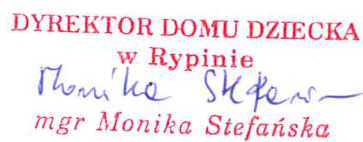 DYREKTOR DOMU DZIECKA
w Rypinie
Monika Stefańska
mgr Monika Stefańska